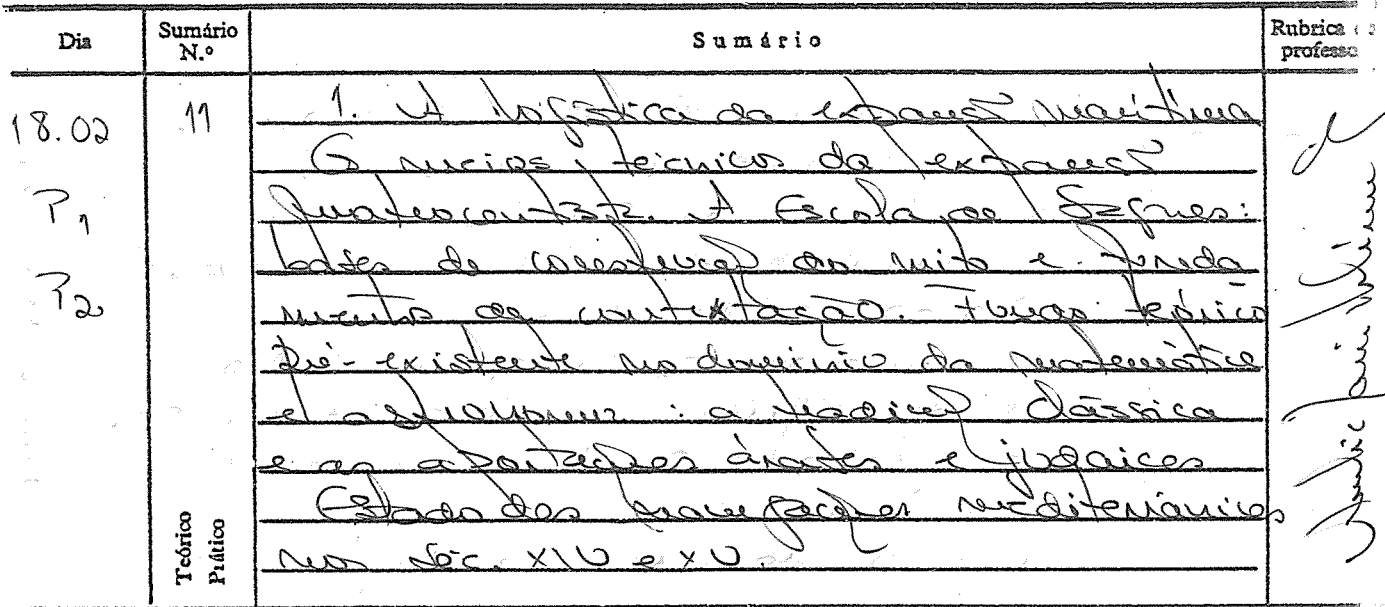 Dia
Sumário N.º
Sumário
Rubrica
professo
18.02
11
P1
P2
1. A logística da expansão marítima
Os meios técnicos da expansão
quatrocentista. A Escola de Sagres:
bases de construção do mito e funda
mentos de contestação. Fundo teórico
pré-existente no domínio da matemática
e astronomia: a tradição clássica
e as aportações árabes e judaicas
Estado das navegações mediterrânicas
nos séc. XIV e XV.
Teórico
Prático